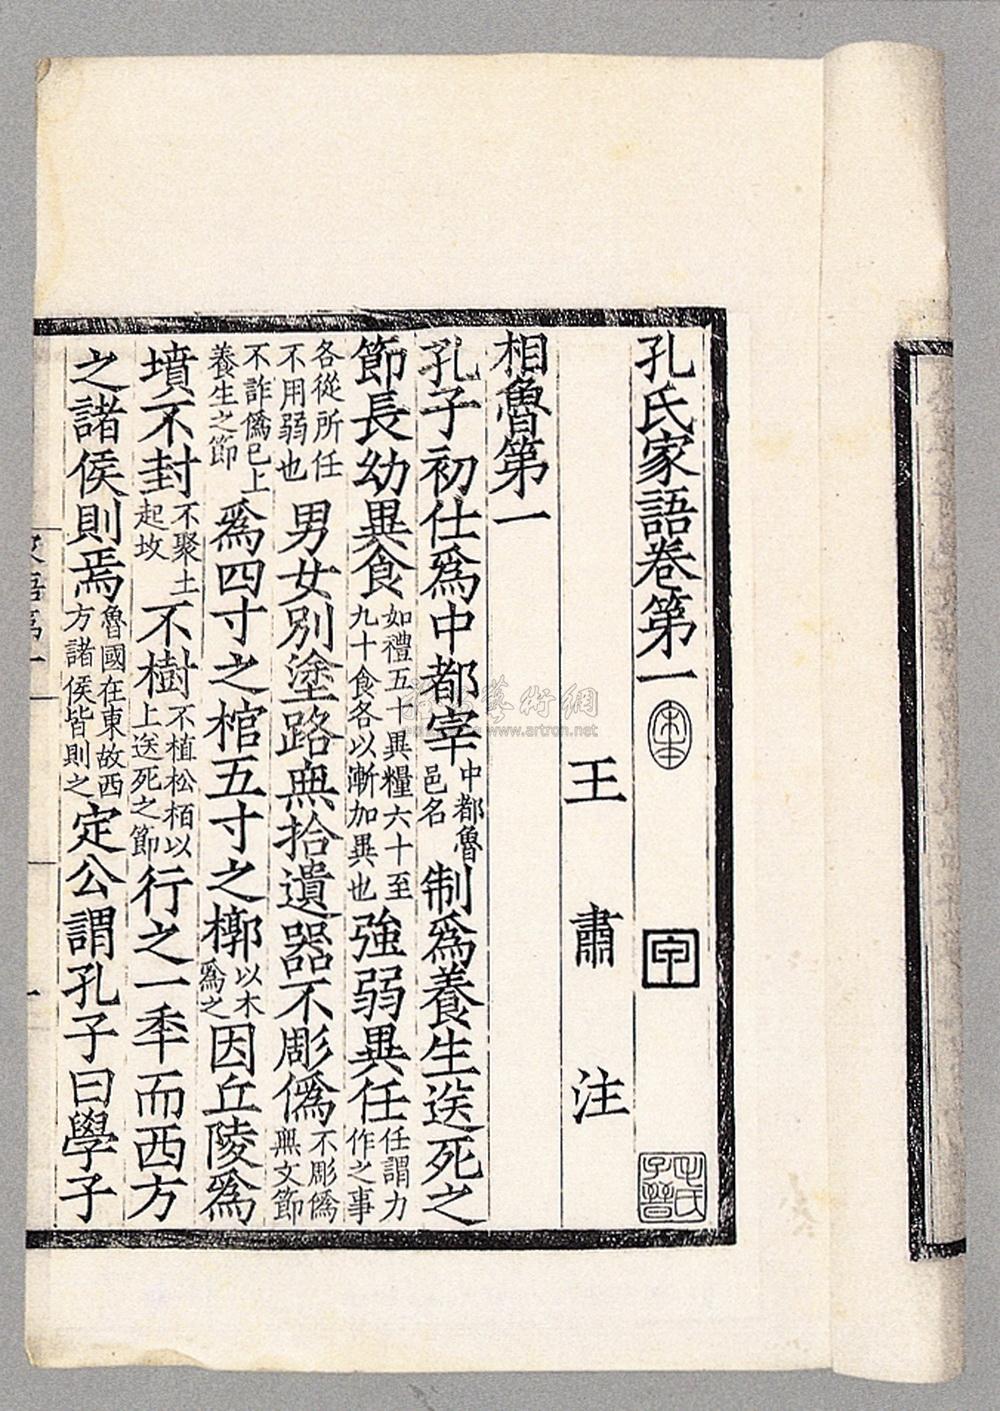 孔氏家語卷第一
宋本
甲
毛氏子晉
王肅注
相魯第一
孔子初仕爲中都宰中都魯邑名制爲養生送死之
節長幼異食如禮五十異糧六十至九十食各以漸加異也強弱異任任謂力作之事
各從所任不用弱也男女別塗路無拾遺器不彫僞不彫僞無文節
不詐僞已上養生之節爲四寸之棺五寸之槨以木爲之因丘陵爲
墳不封不聚土起坟不樹不植松栢以上送死之節行之一秊而西方
之諸侯則焉魯國在東故西方諸侯皆則之定公謂孔子曰學子
artron.net